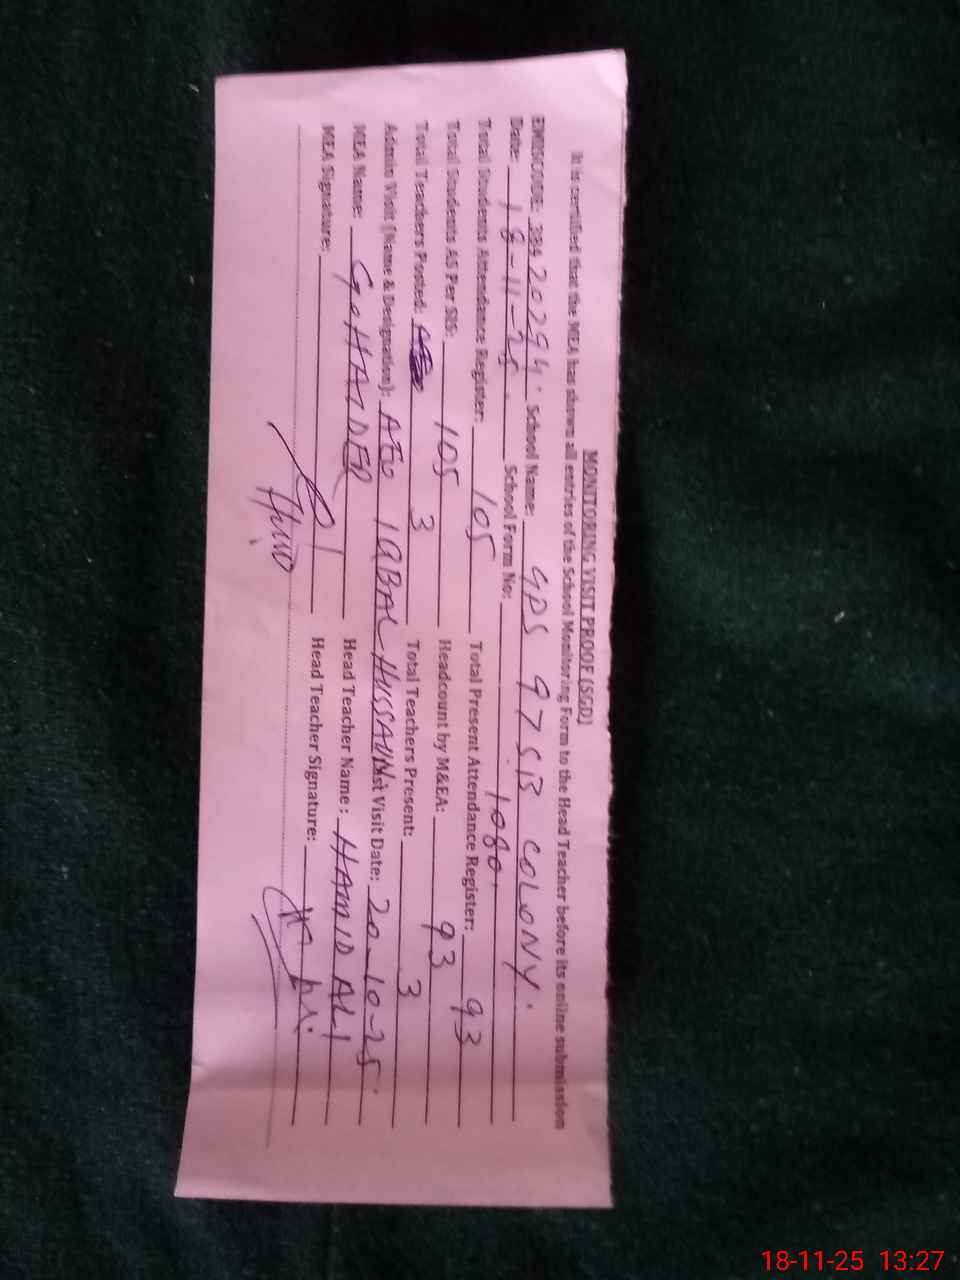 MONITORING VISIT PROOF (SGD)
It is certified that the MEA has shown all entries of the School Monitoring Form to the Head Teacher before its online submission
EMISCODE: 38420294. School Name: GPS 97 SB COLONY.
Date: 18-11-25. School Form No: 1080.
Total Students Attendance Register: 105 Total Present Attendance Register: 93
Total Students AS Per SIS: 105 Headcount by M&EA: 93
Total Teachers Posted: 3 Total Teachers Present: 3
Admin Visit (Name & Designation): AEO IQBAL HUSSAIN Last Visit Date: 20-10-25.
MEA Name: G. HAIDER Head Teacher Name: HAMID ALI
MEA Signature: Head Teacher Signature:
18-11-25 13:27